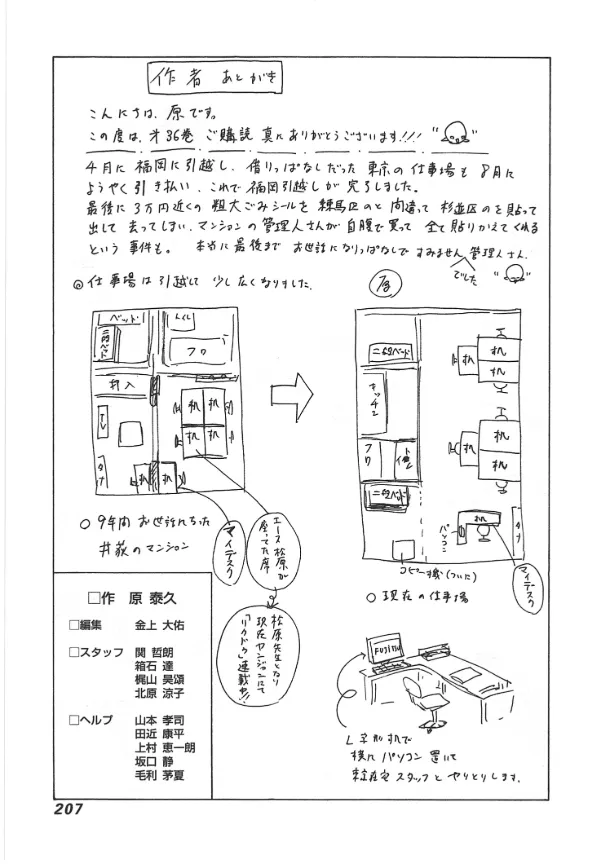 作者 あとがき
こんにちは、原です。
この度は、才36巻 ご購読 真にありがとうございます!!!
4月に 福岡に引越し、借りっぱなしだった 東京の仕事場も 8月に
ようやく引き払い、これで福岡引越しが 完了しました。
最後に 3万円近くの 粗大ごみシールを 練馬区のと 間違って 杉並区のを貼って
出して 去ってしまい、マンションの管理人さんが 自腹で買って 全て貼りかえてくれる
という 事件も。 本当に最後まで お世話になりっぱなしで すみません 管理人さん。
でした
◎仕事場は引越して 少し広くなりました。
ベッド
二段ベッド
トイレ
フロ
押入
TV
タナ
机
机
机
机
机
〇 9年間 お世話になった
井荻のマンション
マイデスク
エース松原が
座ってた席
松原先生となり
現在ヤンジャンにて
「リクドウ」連載中!!
二段ベッド
キッチン
フロ
便
二段ベッド
コピー機(ついに)
机
机
机
机
机
机
机
パソコン
タナ
マイデスク
〇 現在の仕事場
FUJITSU
L字形机で
横にパソコン置いて
東京在宅スタッフと やりとりします。
□作 原 泰久
□編集 金上 大佑
□スタッフ 関 哲朗
箱石 達
梶山 昊頌
北原 涼子
□ヘルプ 山本 孝司
田近 康平
上村 恵一朗
坂口 静
毛利 茅夏
207